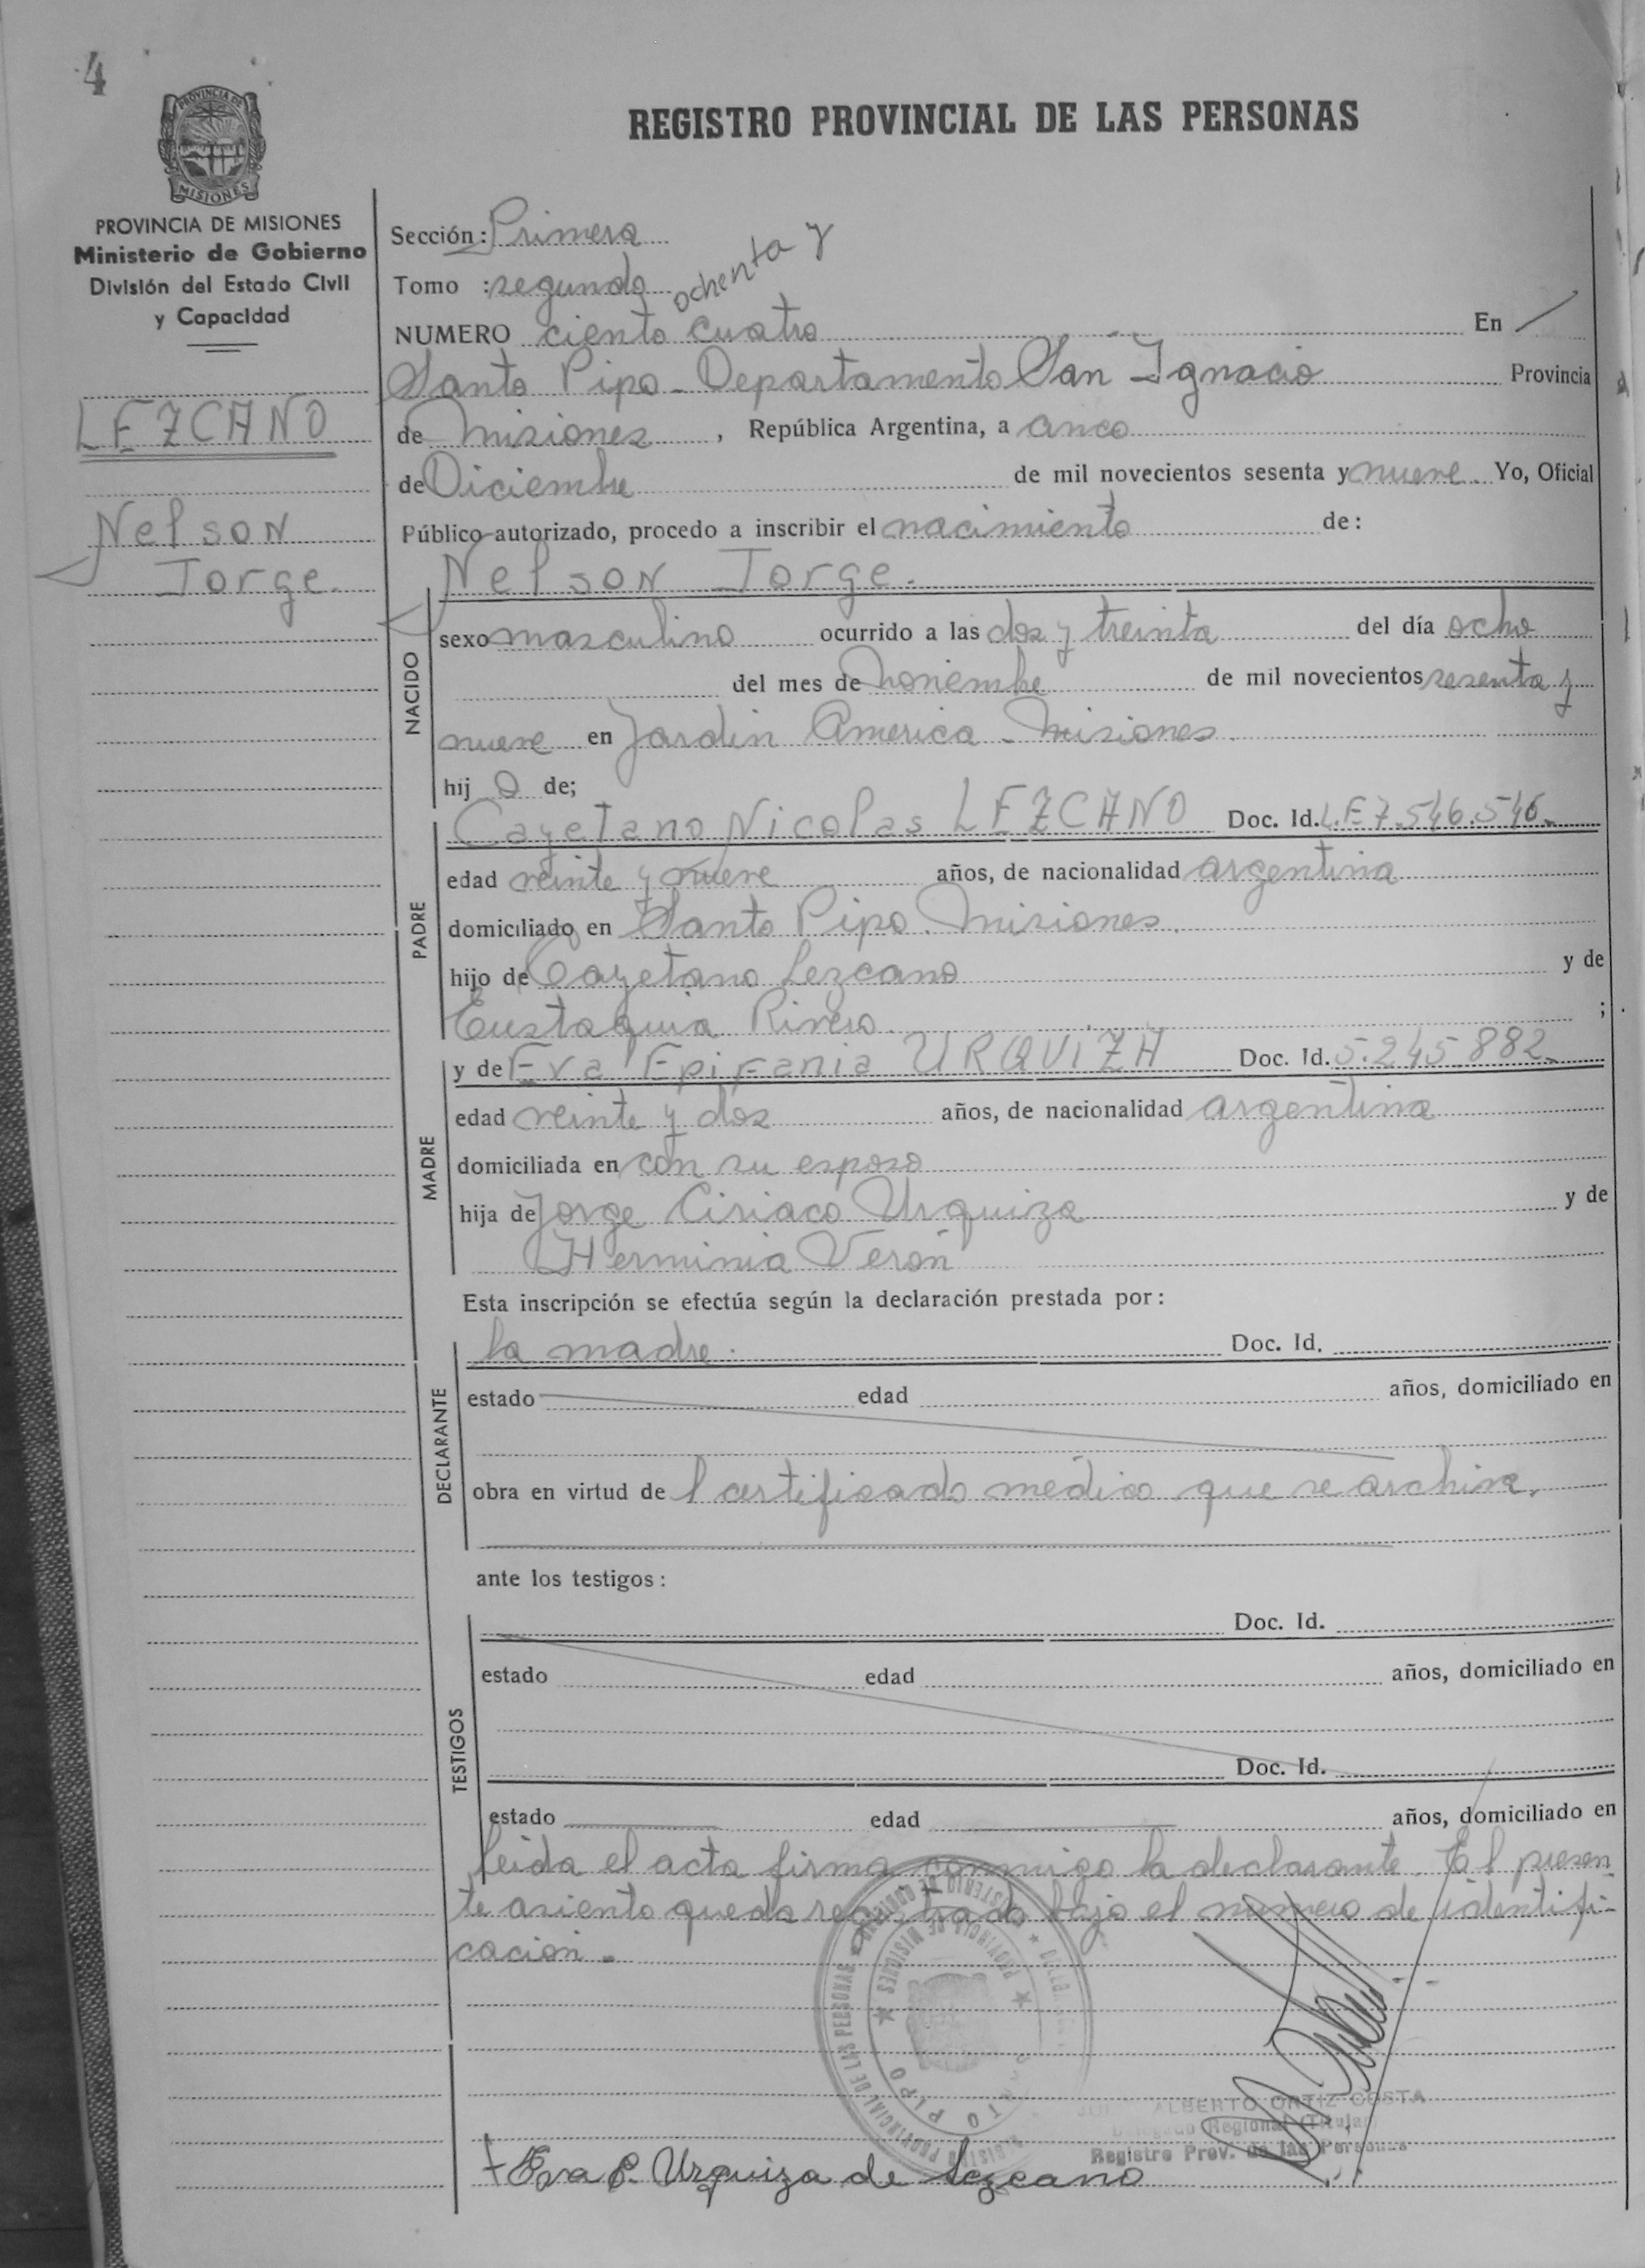 4
PROVINCIA DE
MISIONES
REGISTRO PROVINCIAL DE LAS PERSONAS
PROVINCIA DE MISIONES
Ministerio de Gobierno
División del Estado Civil
y Capacidad
LEZCANO
Nelson
Jorge.
Sección: Primera
Tomo : segundo
ochenta y
NUMERO ciento cuatro En
Santo Pipo - Departamento San Ignacio Provincia
de Misiones , República Argentina, a cinco
de Diciembre de mil novecientos sesenta y nueve. Yo, Oficial
Público autorizado, procedo a inscribir el nacimiento de:
Nelson Jorge.
NACIDO
sexo masculino ocurrido a las dos y treinta del día ocho
del mes de Noviembre de mil novecientos sesenta y
nueve en Jardin America - Misiones.
hij o de;
PADRE
Cayetano Nicolas LEZCANO Doc. Id. L.E 7.546.546.
edad veinte y nueve años, de nacionalidad argentina
domiciliado en Santo Pipo. Misiones.
hijo de Cayetano Lezcano y de
Eustaquia Rivero. ;
MADRE
y de Eva Epifania URQUIZA Doc. Id. 5.245.882.
edad veinte y dos años, de nacionalidad argentina
domiciliada en con su esposo
hija de Jorge Ciriaco Urquiza y de
Herminia Verón
Esta inscripción se efectúa según la declaración prestada por:
DECLARANTE
la madre. Doc. Id.
estado edad años, domiciliado en
obra en virtud de l certificado médico que se archiva.
ante los testigos:
TESTIGOS
Doc. Id.
estado edad años, domiciliado en
Doc. Id.
estado edad años, domiciliado en
leida el acta firma conmigo la declarante. El presen
te asiento queda registrado bajo el numero de identifi-
cación.
PROVINCIA DE MISIONES
ALBERTO ORTIZ COSTA
Regional (Titular)
Registro Prov. de las Personas
Eva E. Urquiza de Lezcano